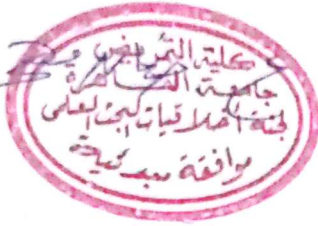 كلية التمريض
جامعة القاهرة
لجنة اخلاقيات البحث العلمى
موافقة مبدئية